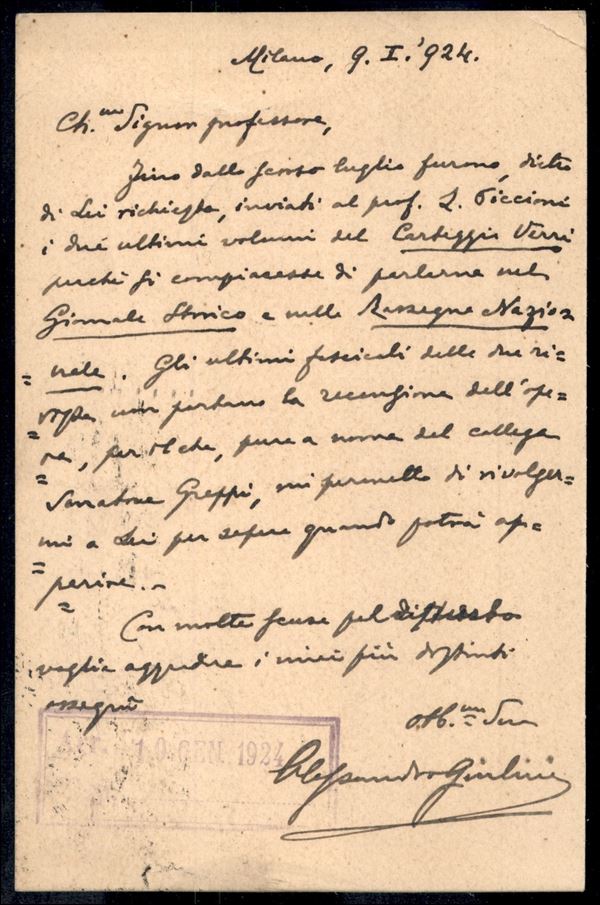 Milano, 9. I. '924.
Ch.mo Signor professore,
Fino dallo scorso luglio furono, dietro
di Lei richiesta, inviati al prof. L. Piccioni
i due ultimi volumi del Carteggio Verri
perché si compiacesse di parlarne nel
Giornale Storico e nella Rassegna Nazio=
=nale. Gli ultimi fascicoli delle due ri=
=viste non portano la recensione dell'ope=
=ra, per il che, pure a nome del collega
Senatore Greppi, mi permetto di rivolger=
=mi a Lei per sapere quando potrà ap=
=parire.-
Con molte scuse pel disturbo
voglia aggradire i miei più distinti
ossegui
obb.mo Suo
Alessandro Giulini
10 GEN. 1924